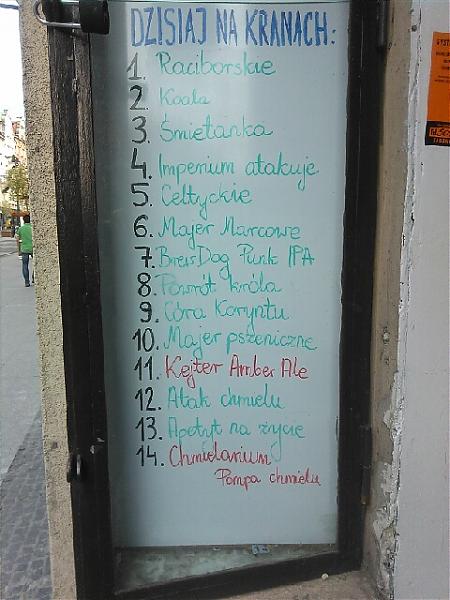 DZISIAJ NA KRANACH:
1. Raciborskie
2. Koala
3. Śmietanka
4. Imperium atakuje
5. Celtyckie
6. Majer Marcowe
7. BrewDog Punk IPA
8. Powrót króla
9. Córa Koryntu
10. Majer pszeniczne
11. Kejter Amber Ale
12. Atak chmielu
13. Apetyt na życie
14. Chmielarium
Pompa chmielu